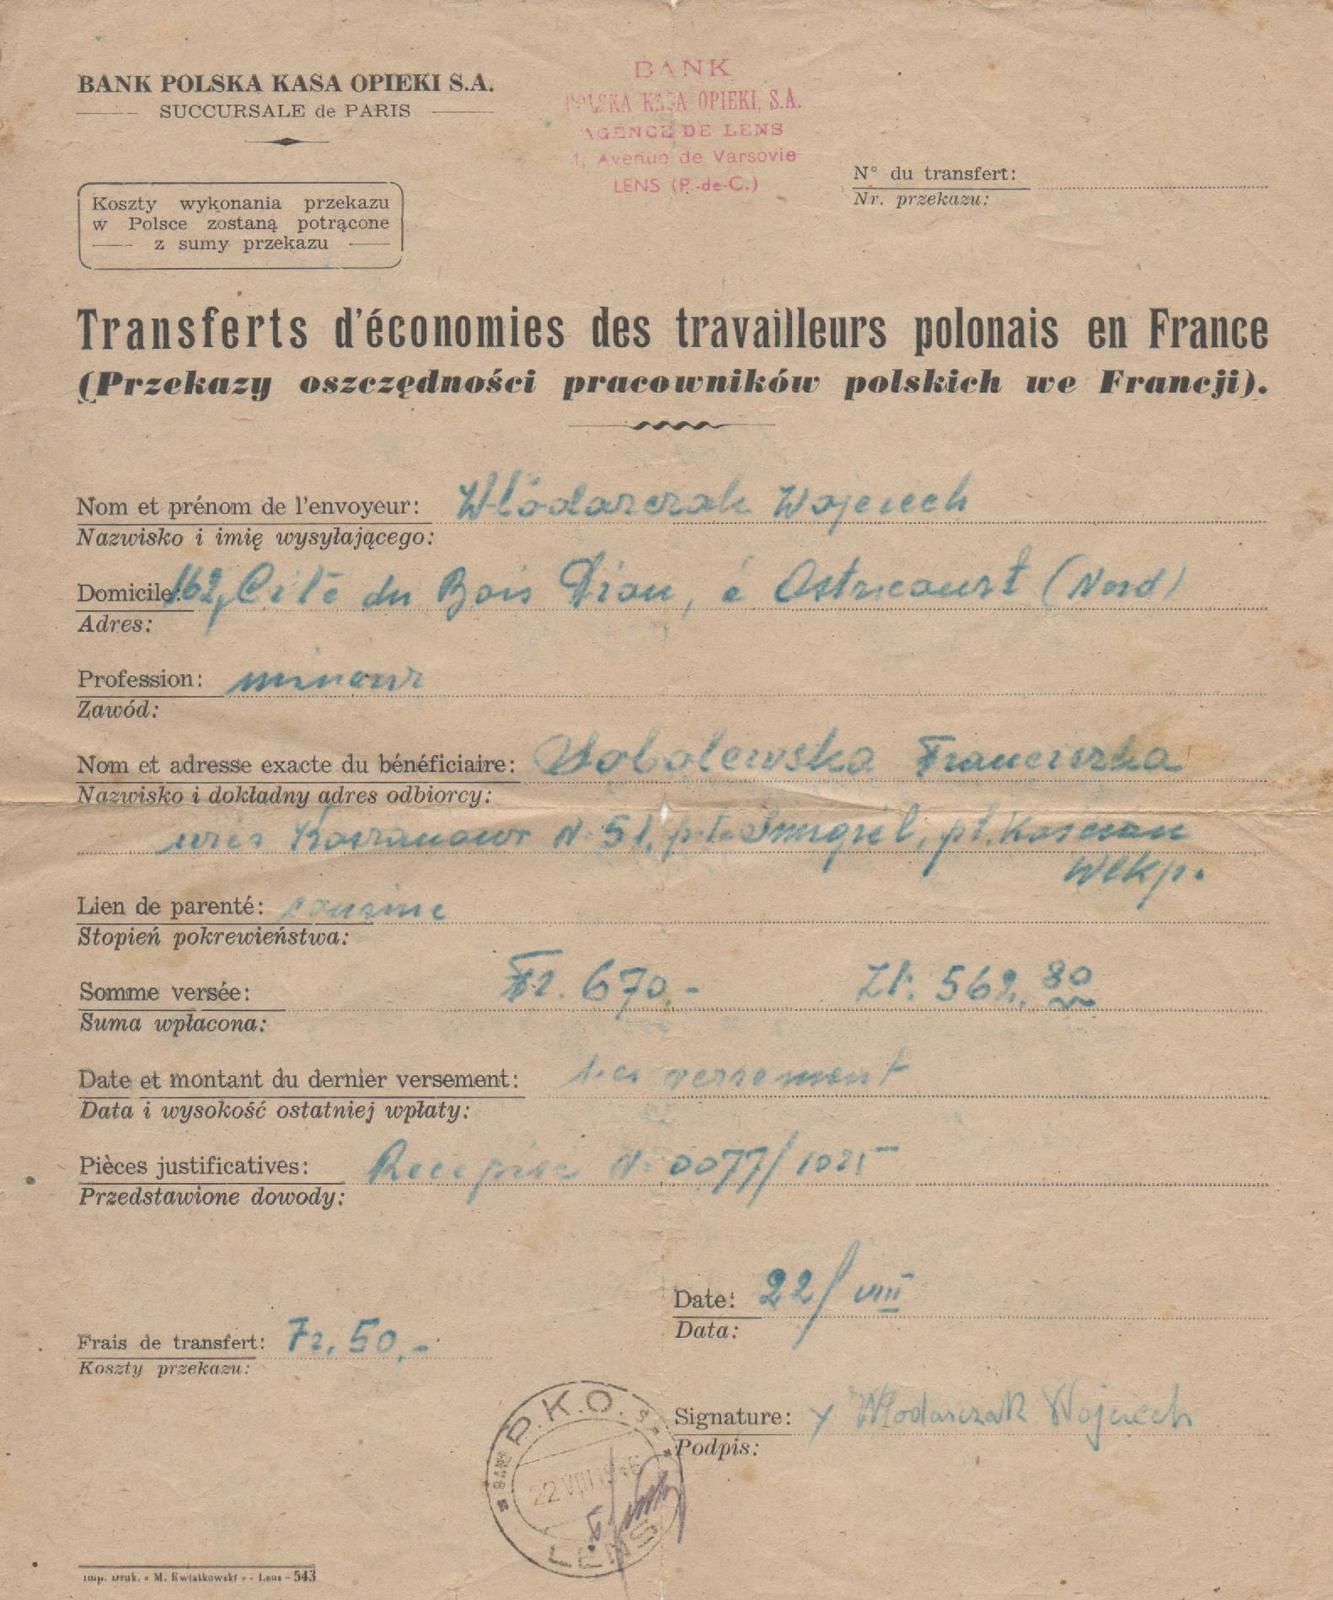 BANK POLSKA KASA OPIEKI S.A.
SUCCURSALE de PARIS
BANK
POLSKA KASA OPIEKI, S.A.
AGENCE DE LENS
1, Avenue de Varsovie
LENS (P.-de-C.)
N° du transfert:
Nr. przekazu:
Koszty wykonania przekazu
w Polsce zostaną potrącone
z sumy przekazu
Transferts d'économies des travailleurs polonais en France
(Przekazy oszczędności pracowników polskich we Francji).
Nom et prénom de l'envoyeur: Włódarczak Wojciech
Nazwisko i imię wysyłającego:
Domicile: 162, Cité du Bois Dion, à Ostricourt (Nord)
Adres:
Profession: mineur
Zawód:
Nom et adresse exacte du bénéficiaire: Sobolewska Franciszka
Nazwisko i dokładny adres odbiorcy:
wieś N. 51, p-ta Śmigiel, pt. Kościan
Wlkp.
Lien de parenté: cousine
Stopień pokrewieństwa:
Somme versée: Fr. 670.- Zł. 562,80
Suma wpłacona:
Date et montant du dernier versement: 1-er versement
Data i wysokość ostatniej wpłaty:
Pièces justificatives: Recepisé N. 0077/1025
Przedstawione dowody:
Date: 22/VIII
Data:
Frais de transfert: Fr. 50.-
Koszty przekazu:
Signature: x Włodarczak Wojciech
Podpis:
BANK P.K.O. S.A.
22 VIII 1946
LENS
Imp. Druk. « M. Kwiatkowski » - Lens - 543